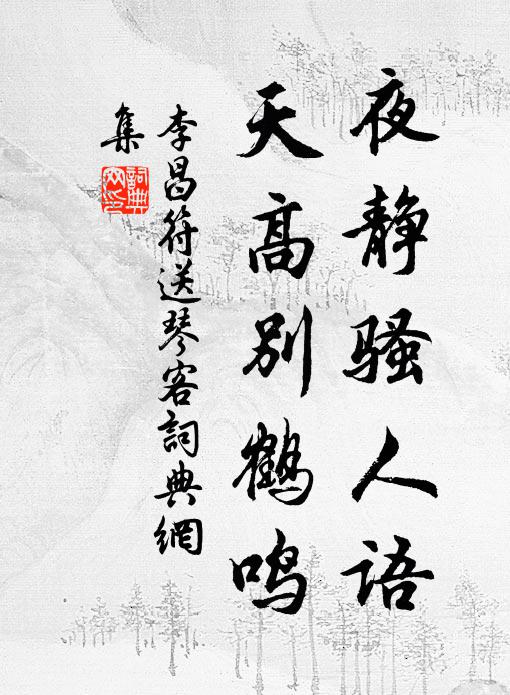 夜静骚人语
天高别鹤鸣
李昌符送琴客詞典網
集
詞典
网印